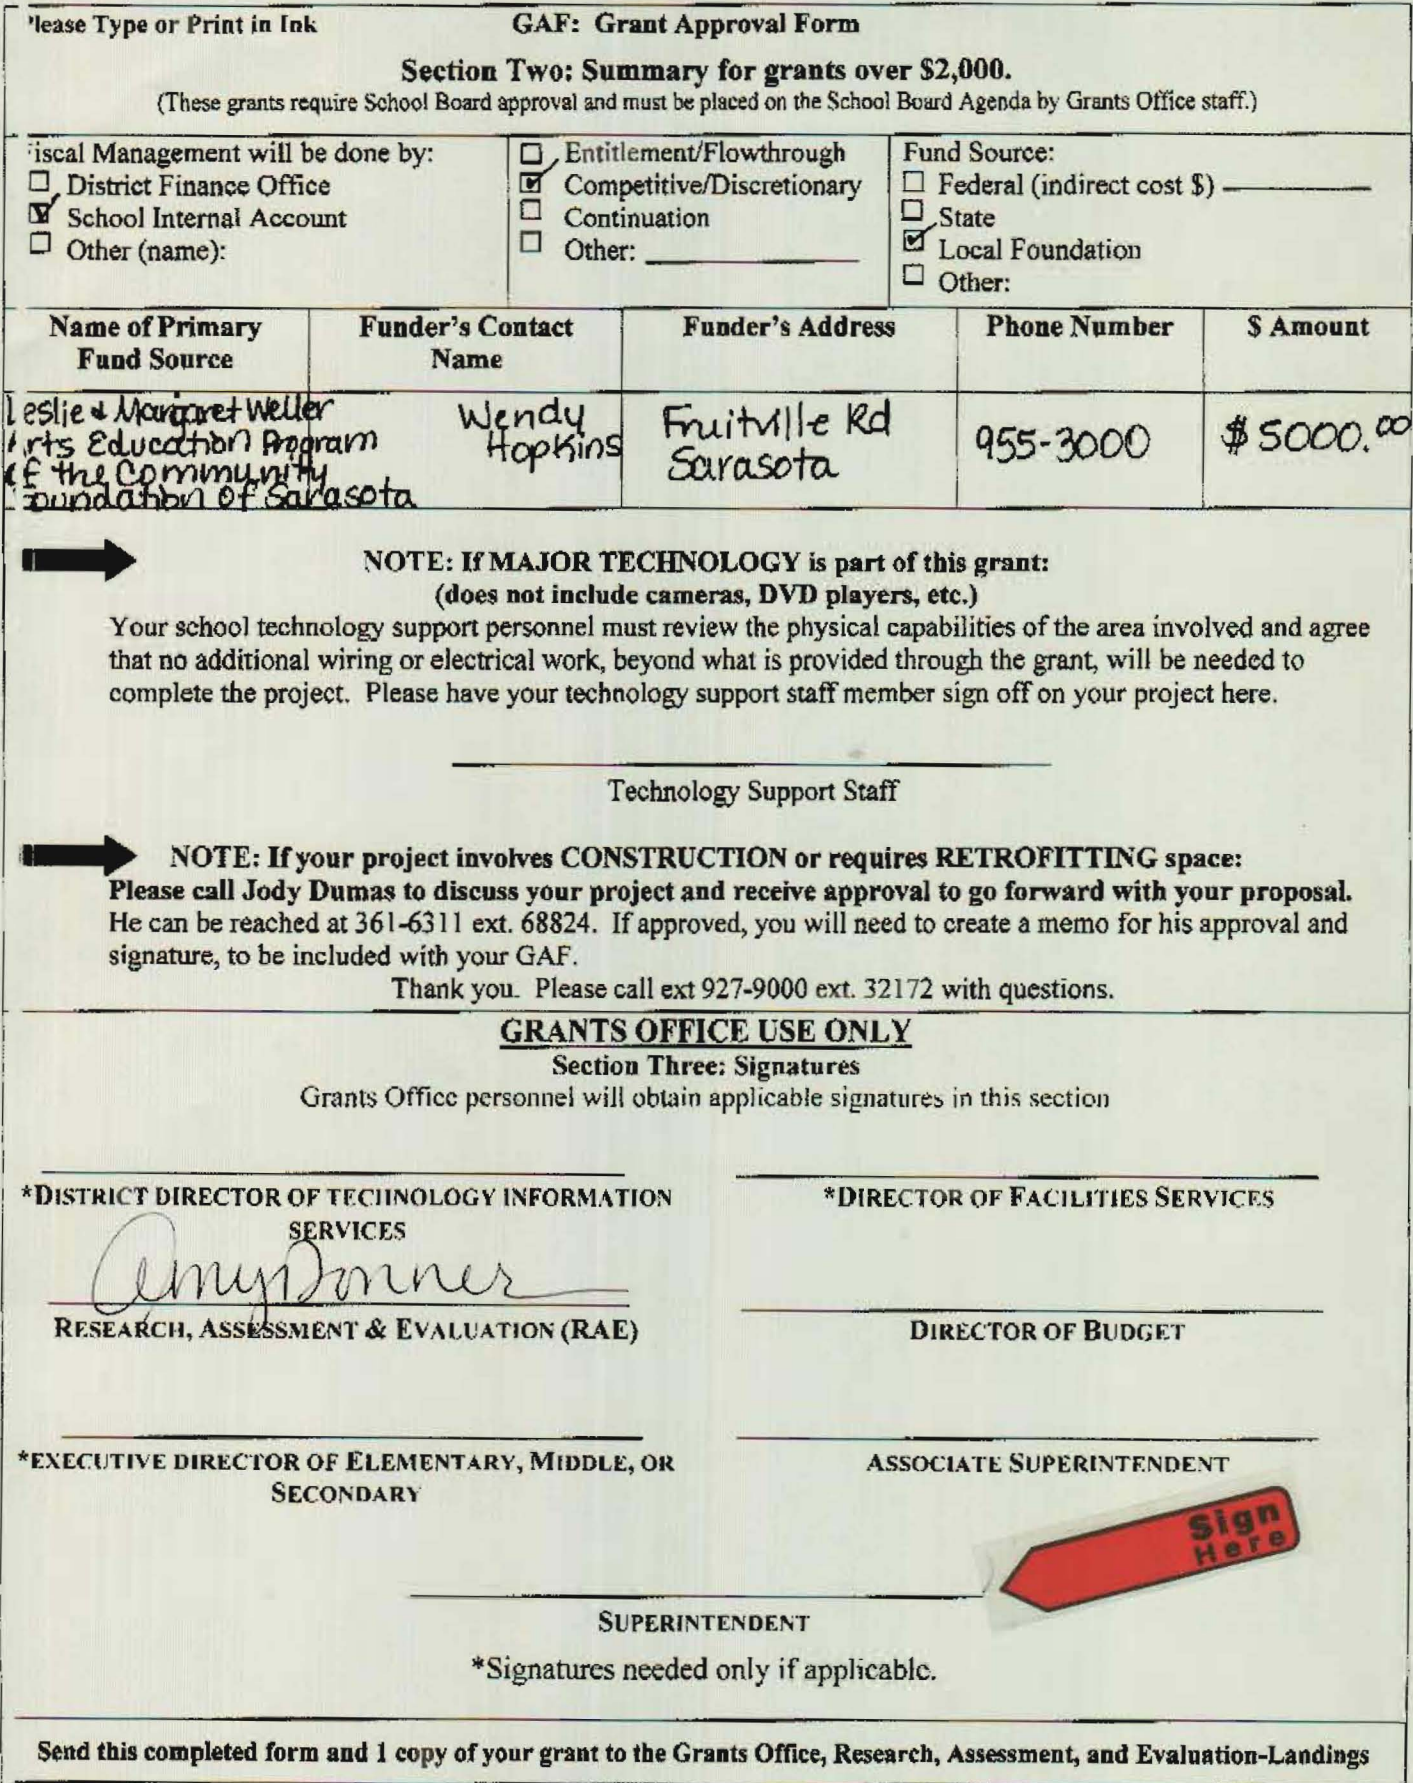 'lease Type or Print in Ink GAF: Grant Approval Form
Section Two: Summary for grants over $2,000.
(These grants require School Board approval and must be placed on the School Board Agenda by Grants Office staff.)
iscal Management will be done by:
☐ District Finance Office
☑ School Internal Account
☐ Other (name):
☐ Entitlement/Flowthrough
☑ Competitive/Discretionary
☐ Continuation
☐ Other:
Fund Source:
☐ Federal (indirect cost $)
☐ State
☑ Local Foundation
☐ Other:
Name of Primary
Fund Source
Funder's Contact
Name
Funder's Address
Phone Number
$ Amount
Leslie & Margaret Weller
Arts Education Program
of the Community
Foundation of Sarasota
Wendy
Hopkins
Fruitville Rd
Sarasota
955-3000
$5000.00
NOTE: If MAJOR TECHNOLOGY is part of this grant:
(does not include cameras, DVD players, etc.)
Your school technology support personnel must review the physical capabilities of the area involved and agree
that no additional wiring or electrical work, beyond what is provided through the grant, will be needed to
complete the project. Please have your technology support staff member sign off on your project here.
Technology Support Staff
NOTE: If your project involves CONSTRUCTION or requires RETROFITTING space:
Please call Jody Dumas to discuss your project and receive approval to go forward with your proposal.
He can be reached at 361-6311 ext. 68824. If approved, you will need to create a memo for his approval and
signature, to be included with your GAF.
Thank you. Please call ext 927-9000 ext. 32172 with questions.
GRANTS OFFICE USE ONLY
Section Three: Signatures
Grants Office personnel will obtain applicable signatures in this section
*DISTRICT DIRECTOR OF TECHNOLOGY INFORMATION
SERVICES
*DIRECTOR OF FACILITIES SERVICES
Amy Donner
RESEARCH, ASSESSMENT & EVALUATION (RAE)
DIRECTOR OF BUDGET
*EXECUTIVE DIRECTOR OF ELEMENTARY, MIDDLE, OR
SECONDARY
ASSOCIATE SUPERINTENDENT
Sign
Here
SUPERINTENDENT
*Signatures needed only if applicable.
Send this completed form and 1 copy of your grant to the Grants Office, Research, Assessment, and Evaluation-Landings